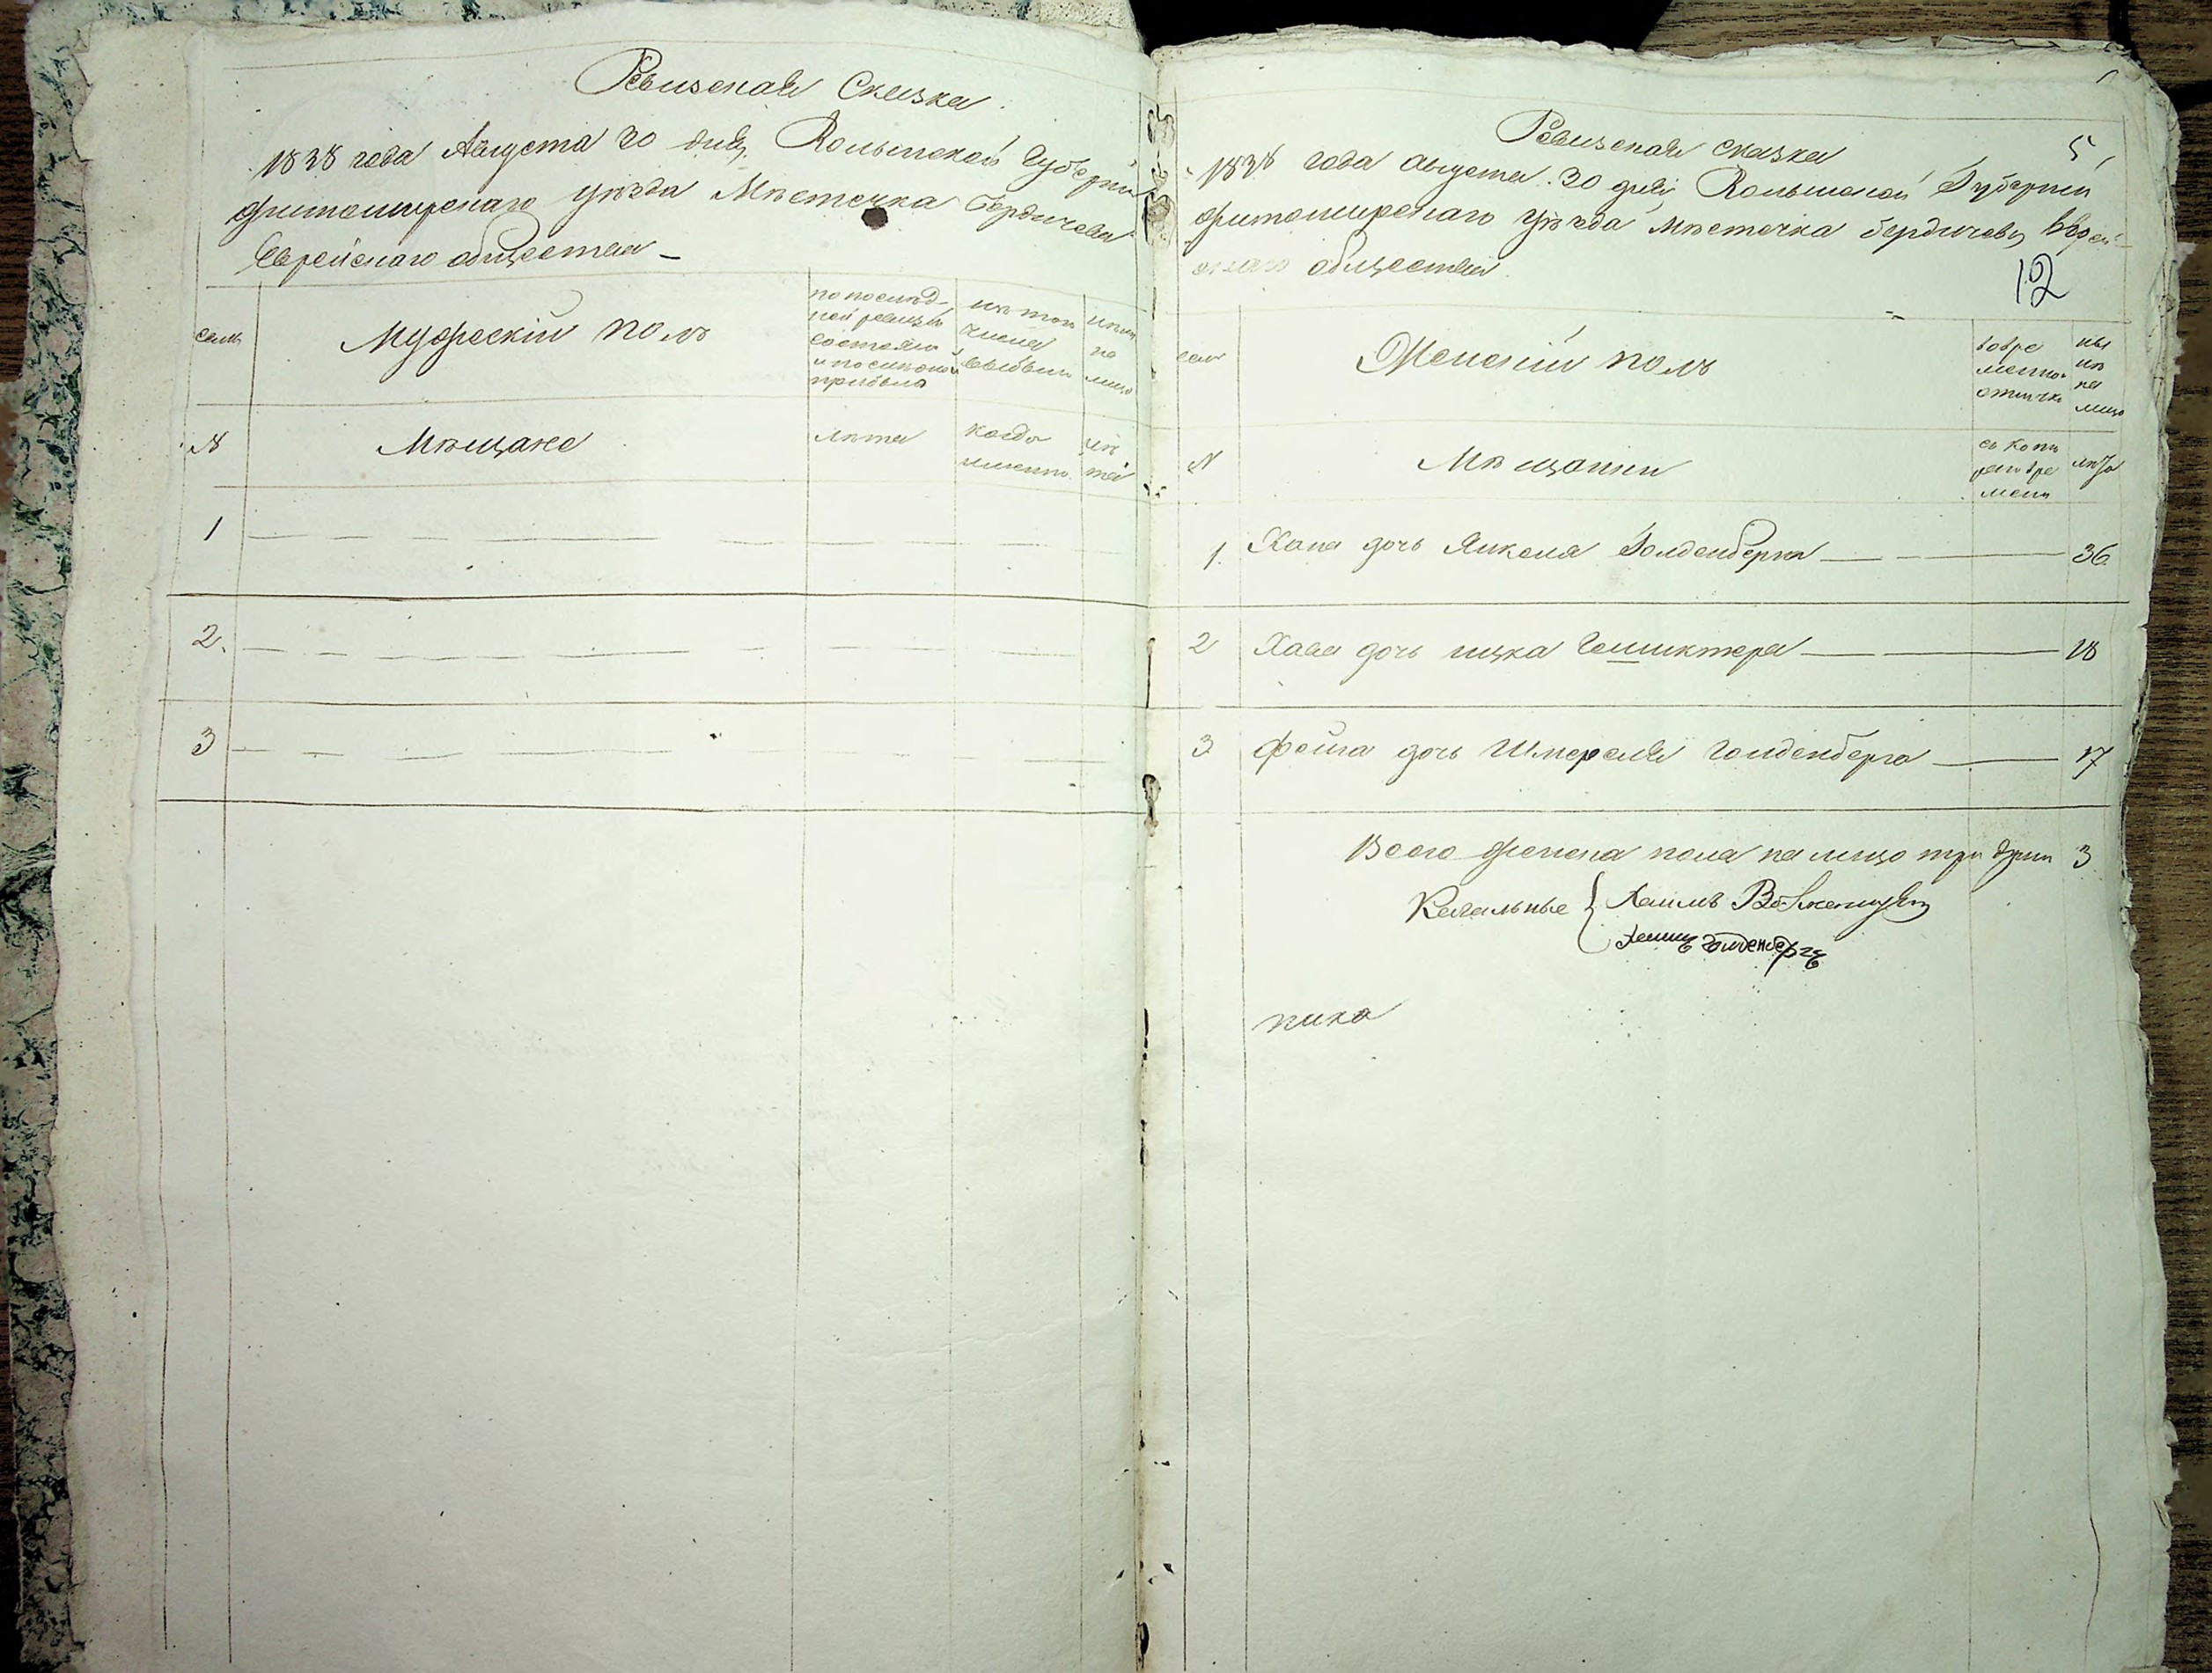 Ревизская Сказка
1838 года Августа 30 дня, Волынской Губерніи
Житомирскаго уѣзда Мѣстечка Бердичева
Еврейскаго общества –
семьи
Мужескій полъ
по послѣд-
ней ревизіи
состояло
и послѣ оной
прибыло
изъ того
числа
выбыло
нынѣ
на
лицо
№
Мѣщане
лѣта
когда
именно
лѣ
та
1
2.
3
5
Ревизская сказка
1838 года Августа 30 дня, Волынской Губерніи
Житомирскаго уѣзда мѣстечка Бердичева, Еврей-
скаго общества
12
семьи
Женскій полъ
во вре
менной
отлучкѣ
ны
нѣ
на
лицо
№
Мѣщанки
съ кото
раго вре
мени
лѣта
1. Хана дочь Янкеля Голденберга 36
2 Хава дочь ицка 18
3 Фейга дочь Шмереля Голденберга 17
Всего женска пола на лицо три души 3
Кагальные Хаимъ
Голденбергъ